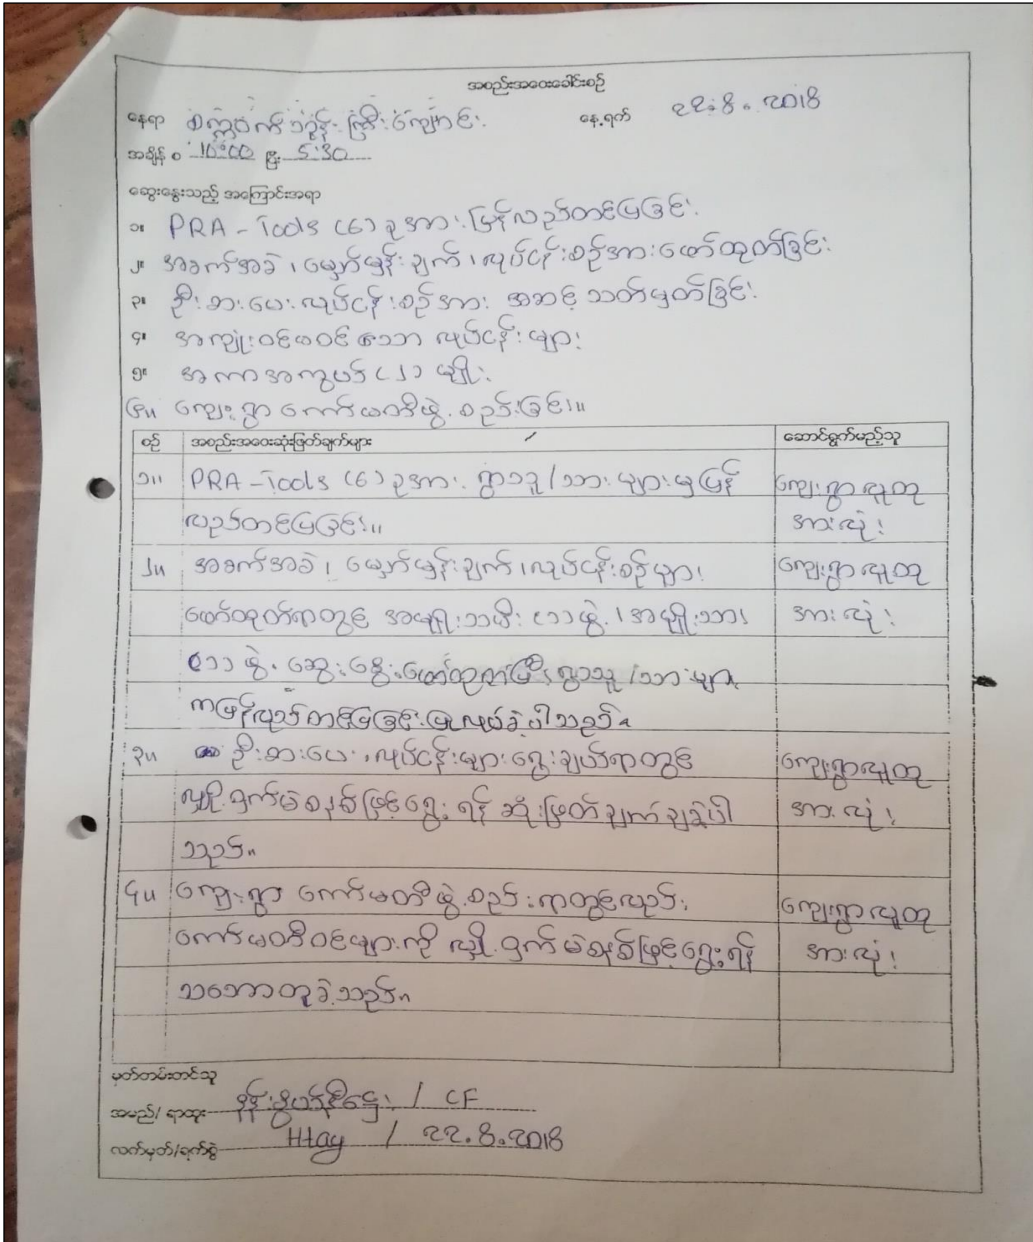 အစည်းအဝေးခေါင်းစဉ်
နေရာ စက္ကဝက်ဘုန်းကြီးကျောင်း နေ့ရက် 22.8.2018
အချိန် 10:00 မှ 5:30
ဆွေးနွေးသည့် အကြောင်းအရာ
၁။ PRA-Tools (6) ခုအား ပြန်လည်တင်ပြခြင်း
၂။ အခက်အခဲ၊ မျှော်မှန်းချက်၊ လုပ်ငန်းစဉ်အားဖော်ထုတ်ခြင်း
၃။ ဦးစားပေးလုပ်ငန်းစဉ်အား အဆင့်သတ်မှတ်ခြင်း
၄။ အကျုံးဝင်မဝင်သော လုပ်ငန်းများ
၅။ အကာအကွယ် (၂) မျိုး
၆။ ကျေးရွာ ကော်မတီဖွဲ့စည်းခြင်း။
စဉ် အစည်းအဝေးဆုံးဖြတ်ချက်များ ဆောင်ရွက်မည့်သူ
၁။ PRA-Tools (6) ခုအား ရွာသူ/သားများမှ ပြန် ကျေးရွာလူထု
လည်တင်ပြခြင်း။ အားလုံး
၂။ အခက်အခဲ၊ မျှော်မှန်းချက်၊ လုပ်ငန်းစဉ်များ ကျေးရွာလူထု
ဖော်ထုတ်ရာတွင် အမျိုးသမီး (၁) ဖွဲ့၊ အမျိုးသား အားလုံး
(၁) ဖွဲ့ ဆွေးနွေးဖော်ထုတ်ပြီး ရွာသူ/သားများ
ကပြန်လည်တင်ပြခြင်းပြုလုပ်ခဲ့ပါသည်။
၃။ ဦးစားပေးလုပ်ငန်းများရွေးချယ်ရာတွင် ကျေးရွာလူထု
လျှို့ဝှက်မဲစနစ်ဖြင့်ရွေးရန် ဆုံးဖြတ်ချက်ချခဲ့ပါ အားလုံး
သည်။
၄။ ကျေးရွာ ကော်မတီဖွဲ့စည်းရာတွင်လည်း ကျေးရွာလူထု
ကော်မတီဝင်များကို လျှို့ဝှက်မဲစနစ်ဖြင့်ရွေးရန် အားလုံး
သဘောတူခဲ့သည်။
မှတ်တမ်းတင်သူ
အမည်/ ရာထူး / CF
လက်မှတ်/ရက်စွဲ Htay / 22.8.2018